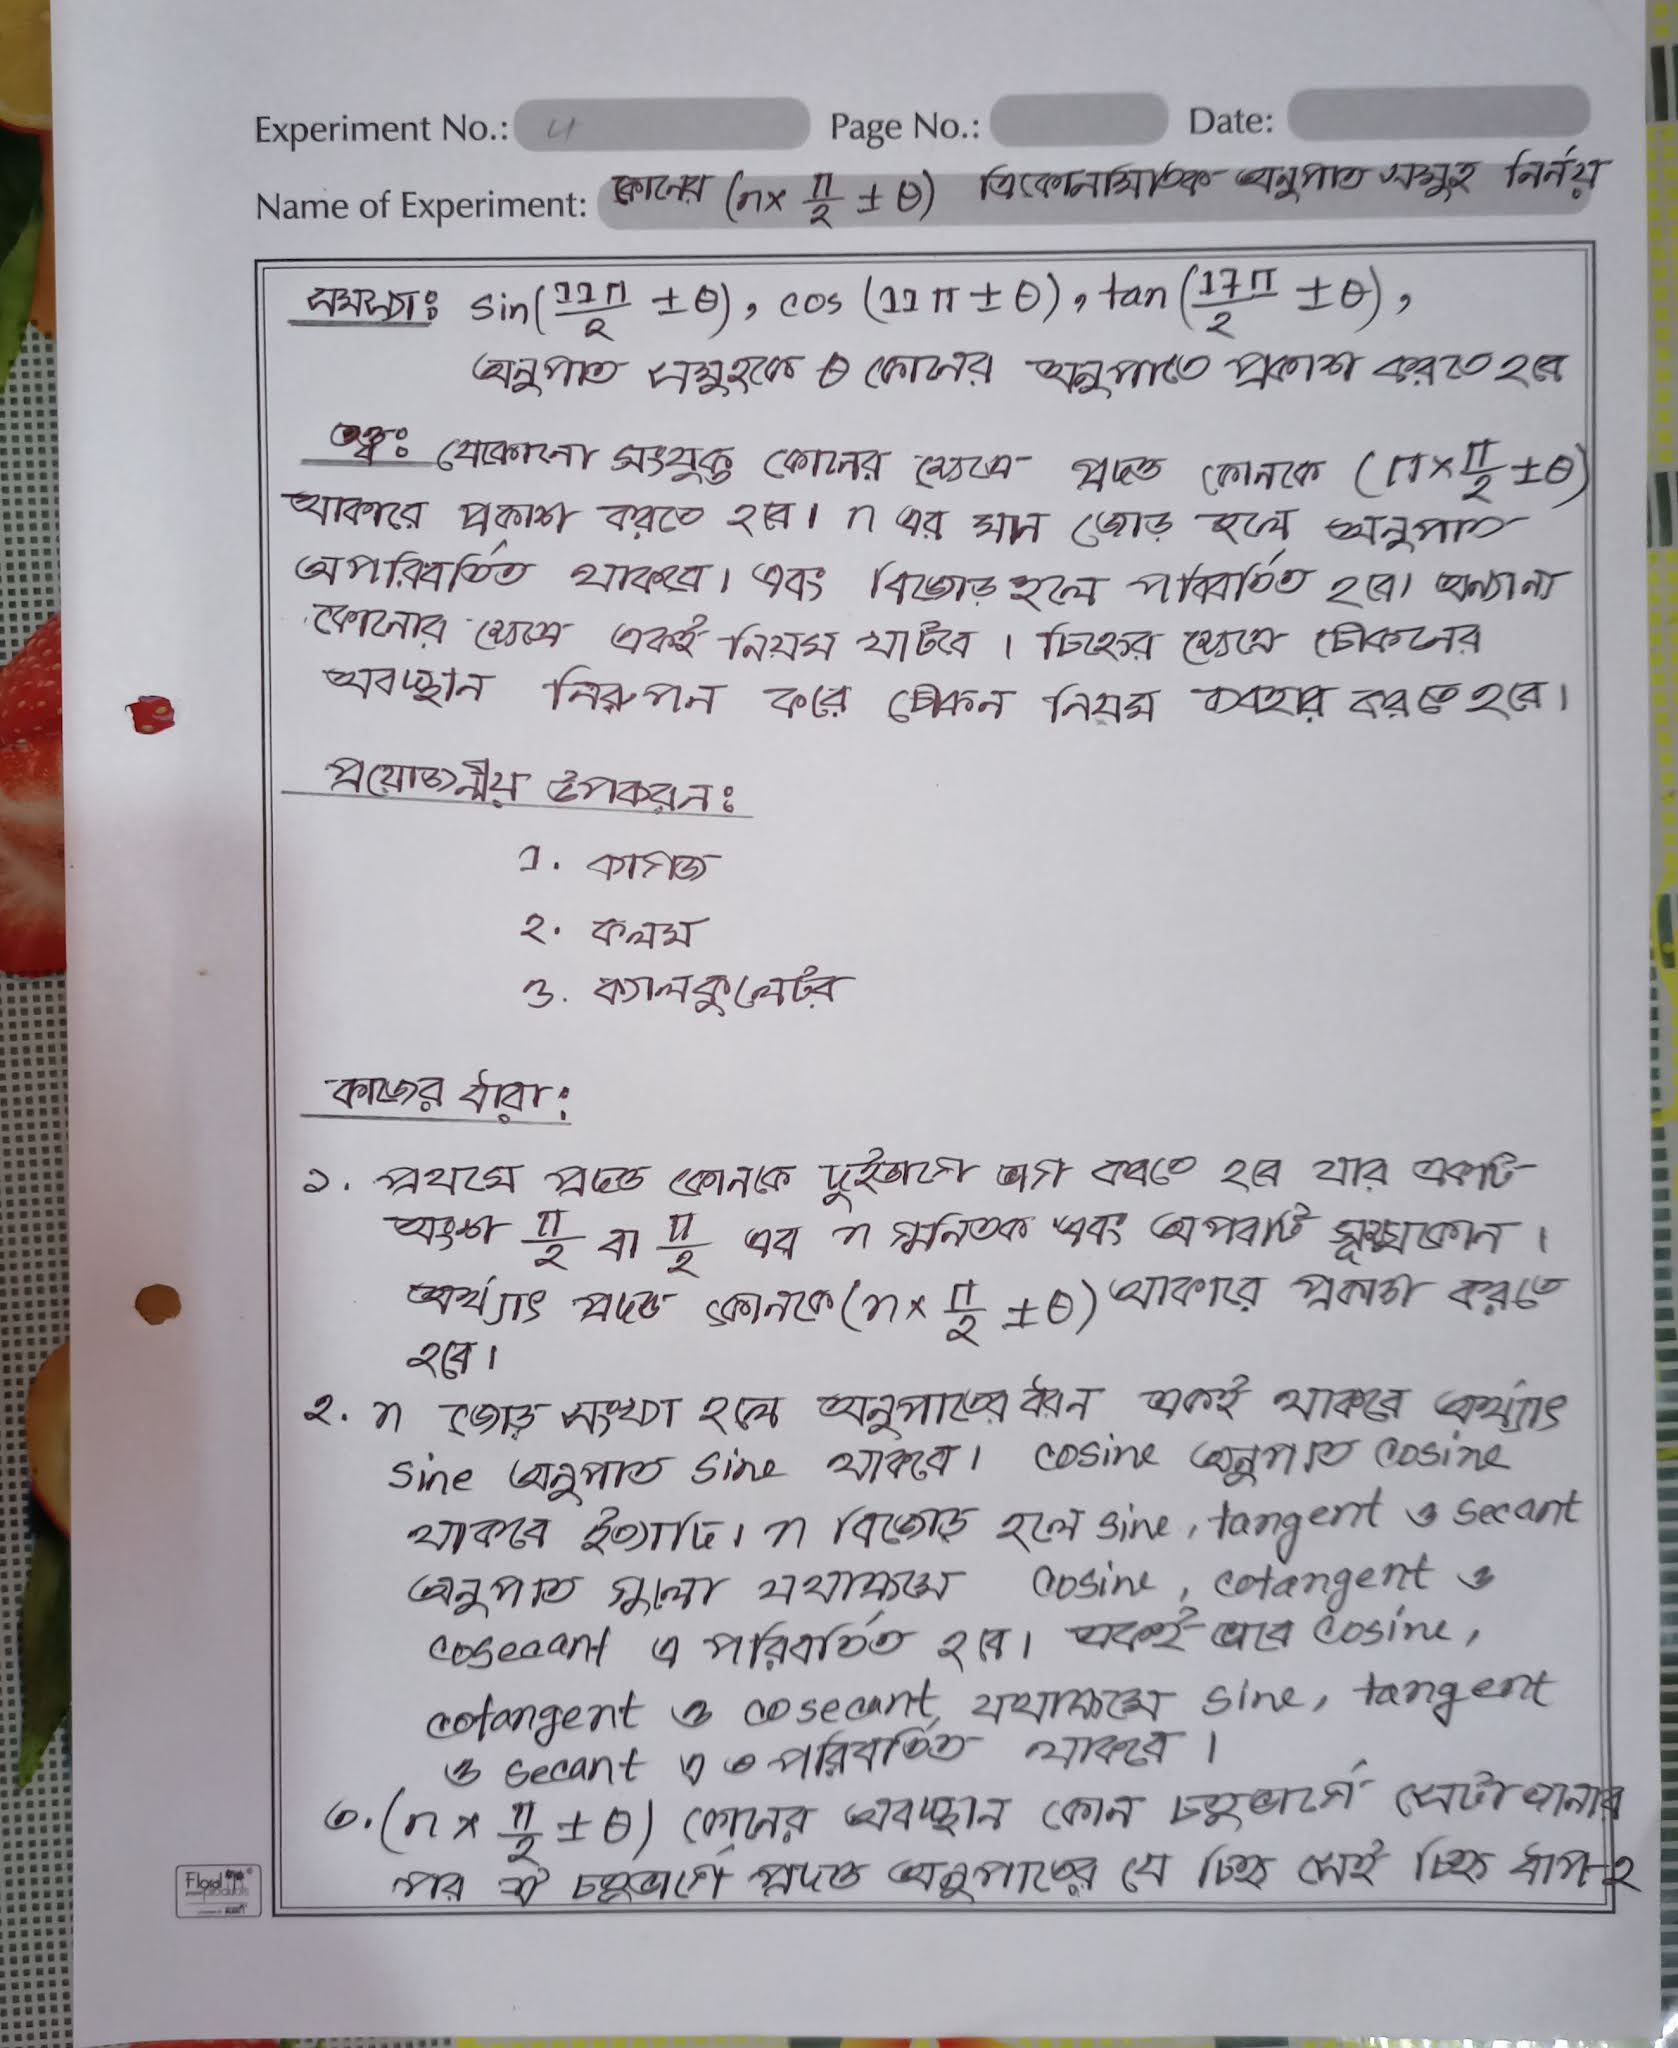 Experiment No.: 4 Page No.: Date:
Name of Experiment: কোনের (n× π/2 ± θ) ত্রিকোনমিতিক অনুপাত সমুহ নির্নয়
সমস্যাঃ sin(11π/2 ± θ), cos (11π ± θ), tan (17π/2 ± θ),
অনুপাত সমুহকে θ কোনের অনুপাতে প্রকাশ করতে হবে
তত্ত্বঃ যেকোনো সংযুক্ত কোনের ক্ষেত্রে প্রদত্ত কোনকে (n×π/2 ± θ)
আকারে প্রকাশ করতে হবে। n এর মান জোড় হলে অনুপাত
অপরিবর্তিত থাকবে। এবং বিজোড় হলে পরিবর্তিত হবে। অন্যান্য
কোনের ক্ষেত্রে একই নিয়ম খাটবে। চিহ্নের ক্ষেত্রে চৌকনের
অবস্থান নিরুপন করে চৌকন নিয়ম ব্যবহার করতে হবে।
প্রয়োজনীয় উপকরনঃ
১. কাগজ
২. কলম
৩. ক্যালকুলেটর
কাজের ধারা:
১. প্রথমে প্রদত্ত কোনকে দুইভাগে ভাগ করতে হবে যার একটি
অংশ π/2 বা π/2 এর n গুনিতক এবং অপরটি সূক্ষ্মকোন।
অর্থ্যাৎ প্রদত্ত কোনকে (n× π/2 ± θ) আকারে প্রকাশ করতে
হবে।
২. n জোড় সংখ্যা হলে অনুপাতের ধরন একই থাকবে অর্থ্যাৎ
sine অনুপাত sine থাকবে। cosine অনুপাত cosine
থাকবে ইত্যাদি। n বিজোড় হলে sine, tangent ও secant
অনুপাত গুলো যথাক্রমে cosine, cotangent ও
cosecant এ পরিবর্তিত হবে। একই ভাবে cosine,
cotangent ও cosecant যথাক্রমে sine, tangent
ও secant এ পরিবর্তিত থাকবে।
৩. (n× π/2 ± θ) কোনের অবস্থান কোন চতুর্ভাগে সেটা জানার
পর ঐ চতুর্ভাগে প্রদত্ত অনুপাতের যে চিহ্ন সেই চিহ্ন ধাপ-২
Floral
products